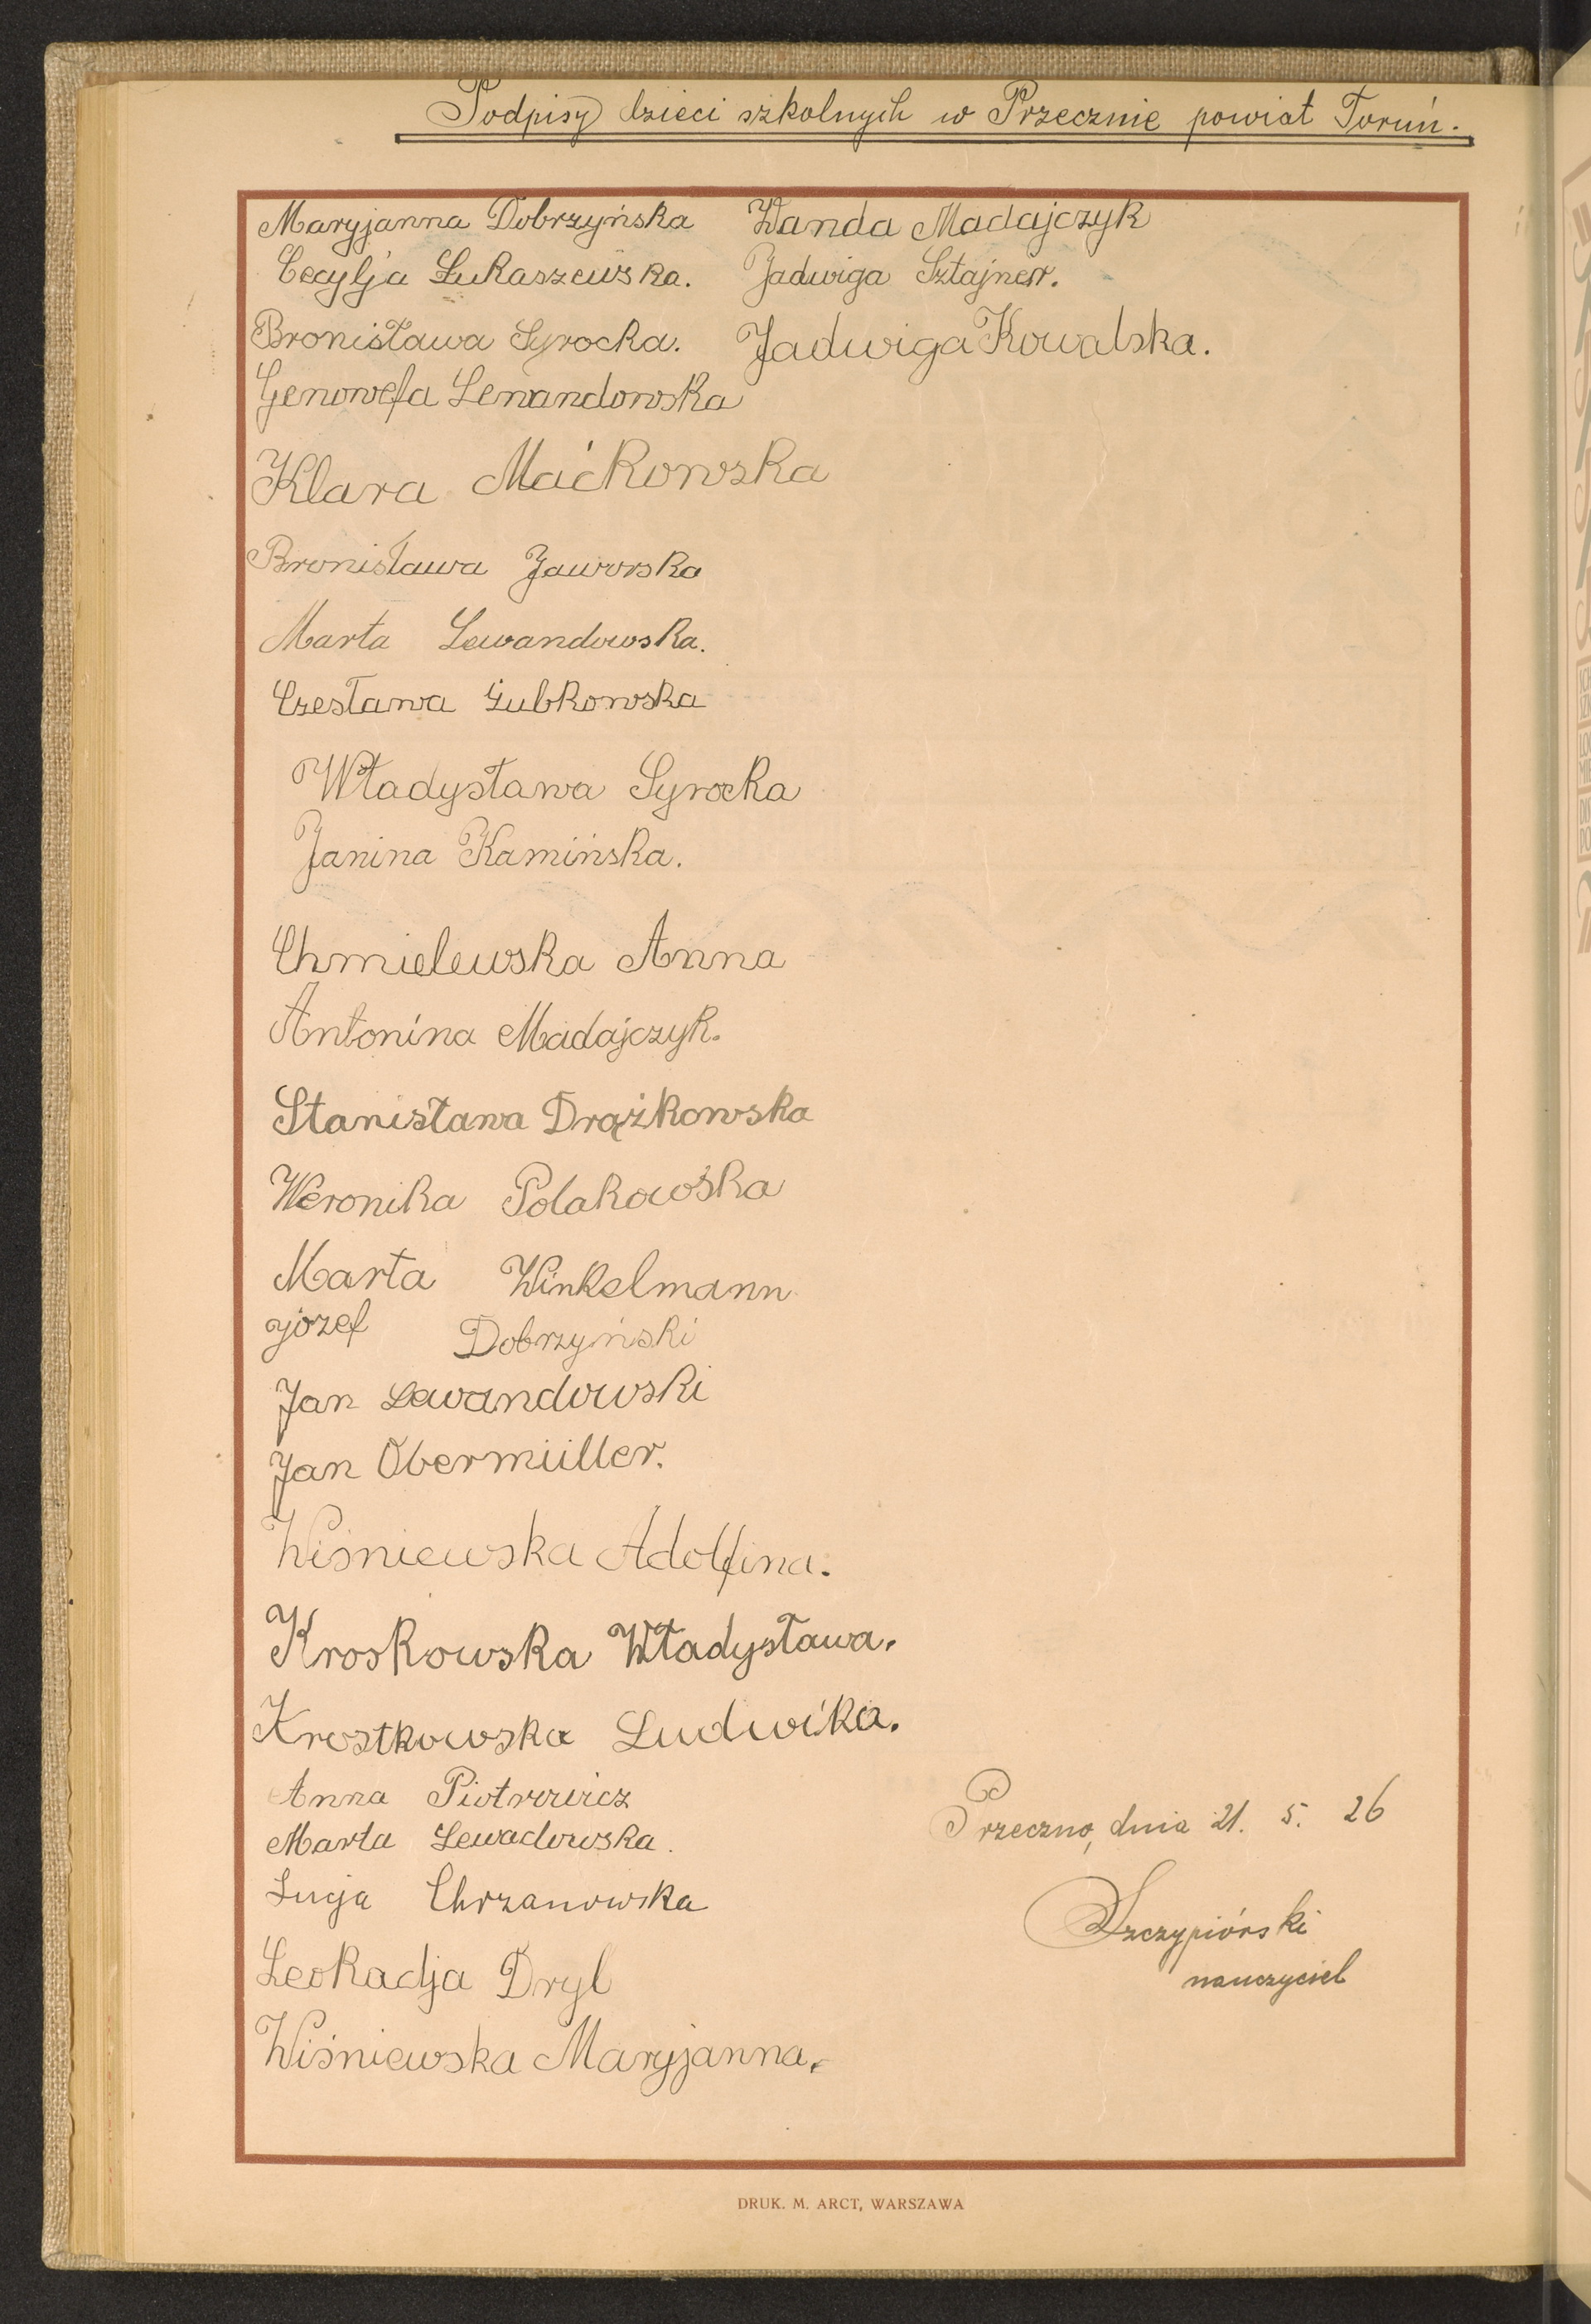 Podpisy dzieci szkolnych w Przecznie powiat Toruń.
Maryjanna Dobrzyńska
Cecylja Łukaszewska.
Bronisława Syrocka.
Genowefa Lewandowska
Klara Maćkowska
Bronisława Jaworska
Marta Lewandowska.
Czesława Żubkowska
Władysława Syrocka
Janina Kamińska.
Chmielewska Anna
Antonina Madajczyk.
Stanisława Drążkowska
Weronika Polakowska
Marta Winkelmann
józef Dobrzyński
Jan Lewandowski
Jan Obermüller.
Wiśniewska Adolfina.
Kroskowska Władysława.
Krostkowska Ludwika.
Anna Piotrowicz
Marta Lewadowska.
Łucja Chrzanowska
Leokadja Dryl
Wiśniewska Maryjanna.
Wanda Madajczyk
Jadwiga Sztajner.
Jadwiga Kowalska.
Przeczno, dnia 21. 5. 26
Szczypiórski
nauczyciel
DRUK. M. ARCT, WARSZAWA